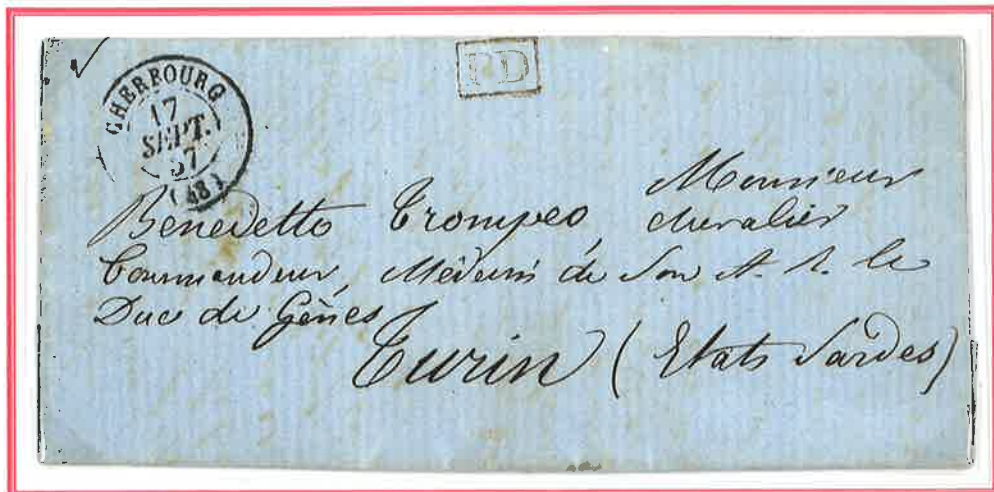 CHERBOURG
17
SEPT.
57
(48)
PD
Monsieur
Benedetto Trompeo, chevalier
Commandeur, Médecin de Son A. R. le
Duc de Gênes
Turin (Etats Sardes)